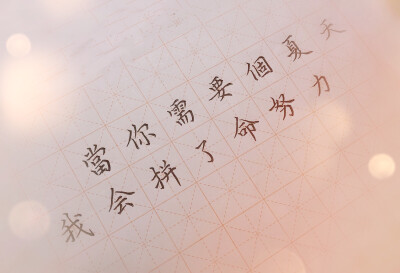 當你需要個夏天
我会拼了命努力